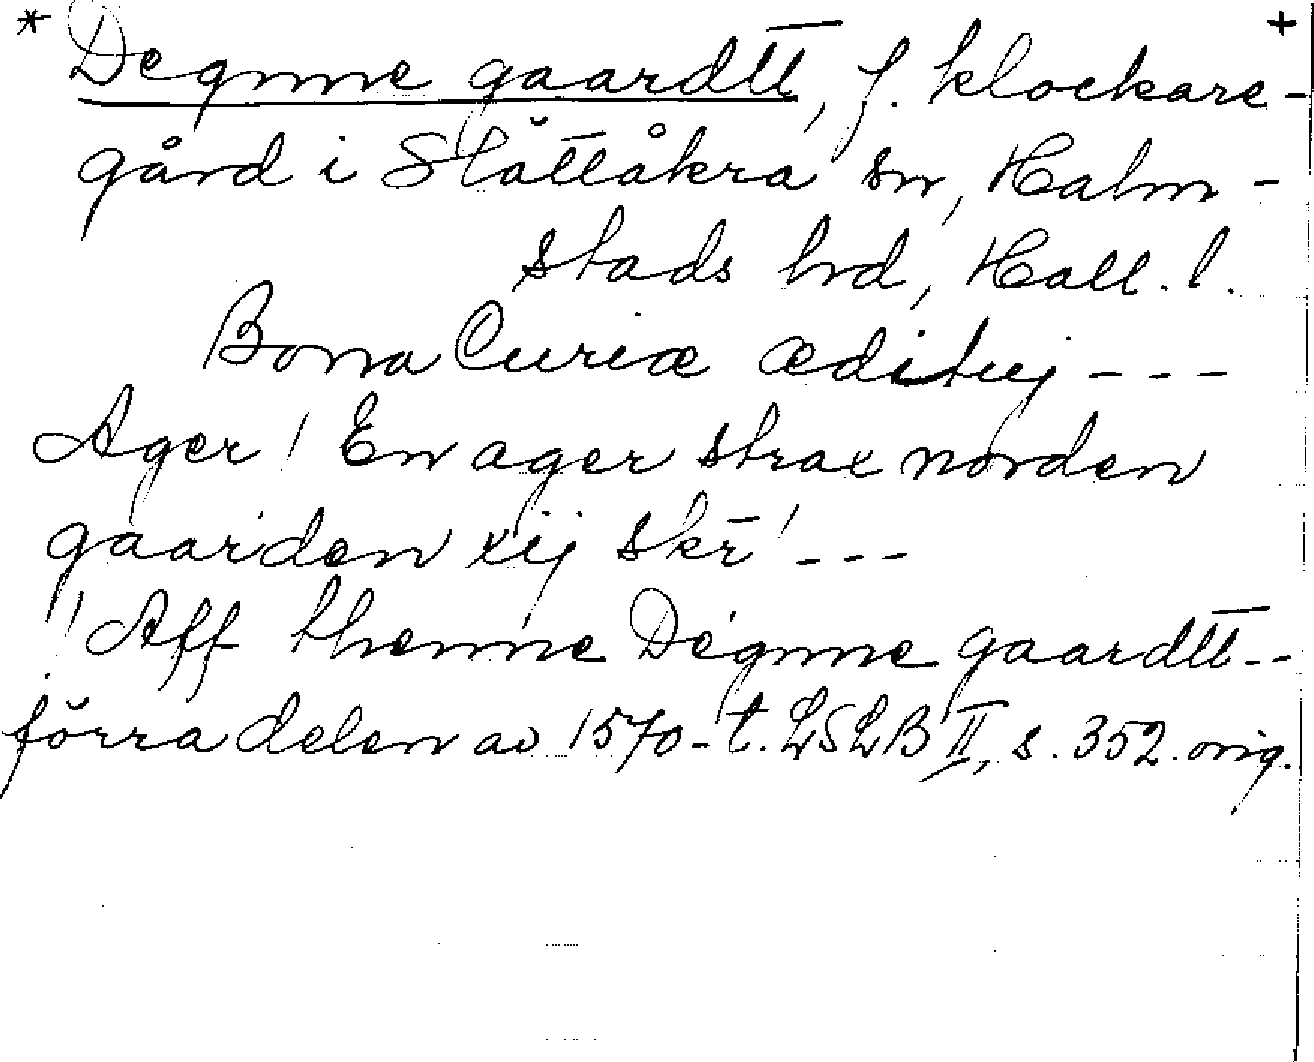 * Degnne gaardtt, f. klockare- +
gård i Slättåkra sn, Halm-
stads hrd, Hall. l.
Bona Curiæ ædituj - - -
Ager / En ager strax norden
gaarden xij skr̄ / - - -
/ Aff thenne Degnne gaardtt - -
förra delen av 1570-t. LSLB II, s. 352. orig.